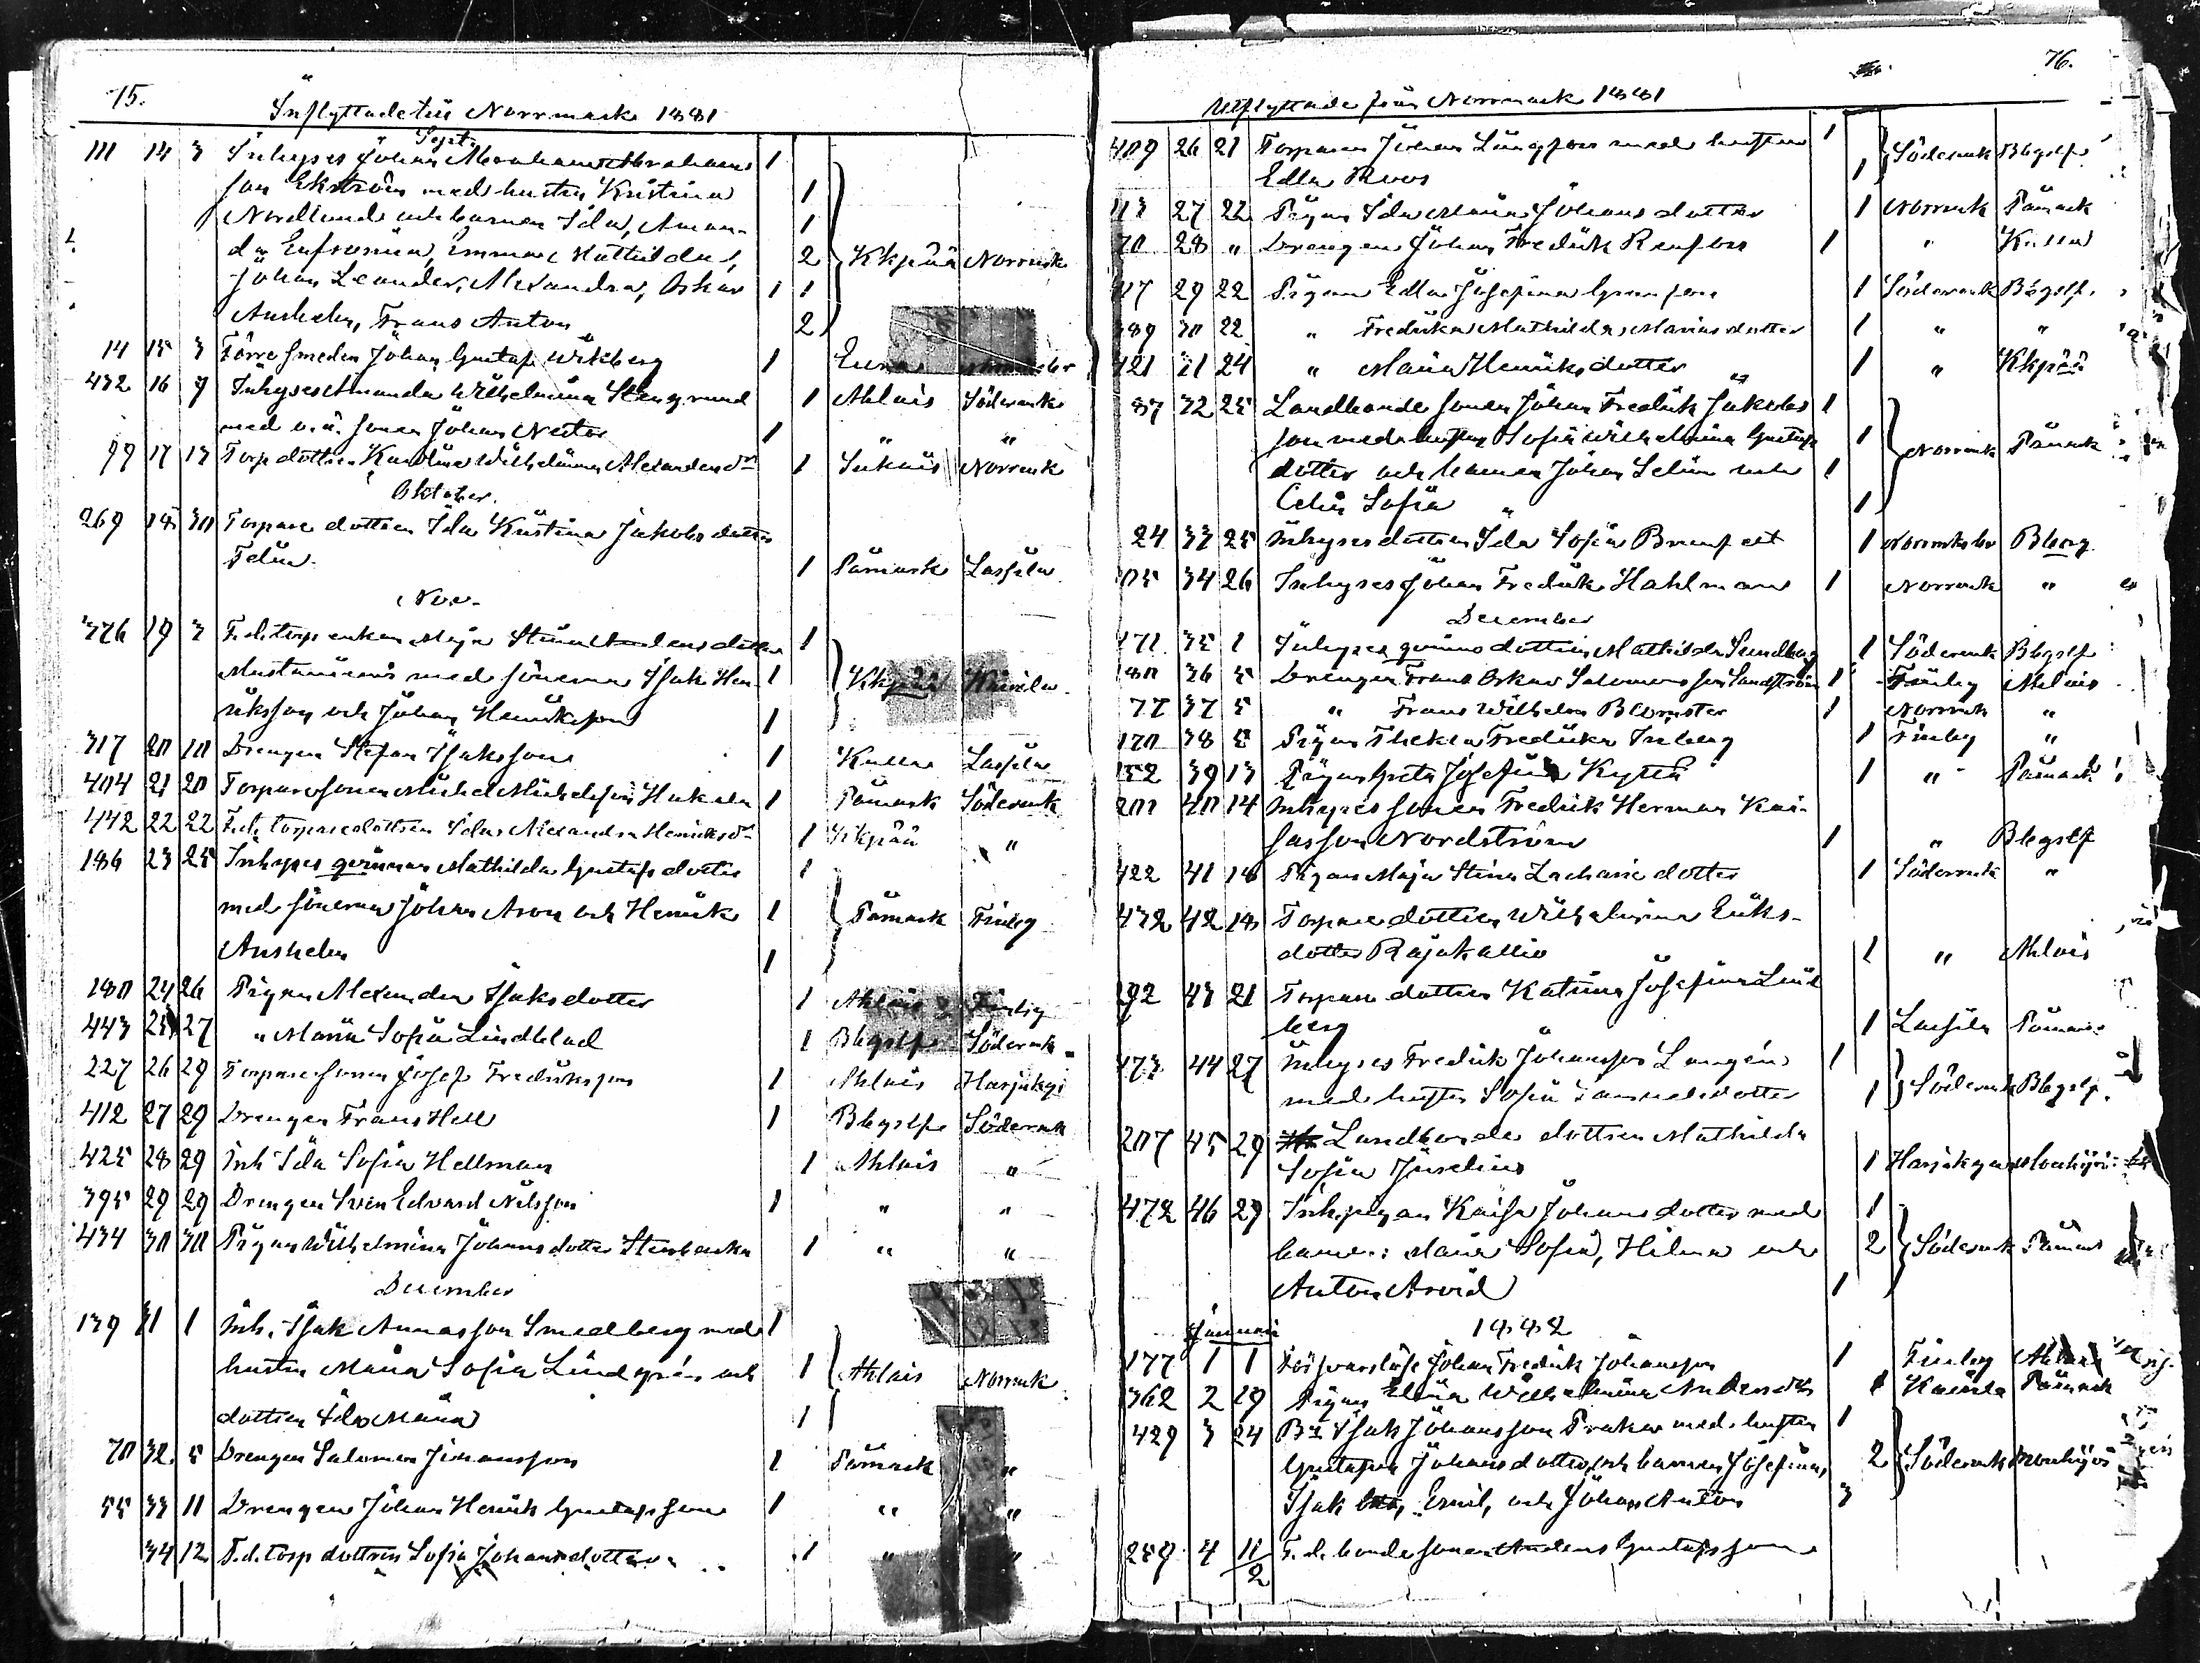 75.
Inflyttade till Norrmark 1881
Sept.
111 14 3 Inhyses Johan Abraham Abrahams 1
son Ekström med hustru Kristina 1
Nordlund och barnen Ida, Aman- 1
da Eufrosina, Emma Mathilda, 2 Hkpää Norrmrk
Johan Leander, Alexandra, Oskar 1 1
Anshelm, Frans Anton 2
14 15 3 Förre smeden Johan Gustaf Wikberg 1 Eura
432 16 9 Inhyses Amanda Wilhelmina Stengrund 1 Ahlais Södermrk
med o.ä. sonen Johan Nestor 1 " "
99 17 13 Torp dottren Karolina Wilhelmina Alexandersdr 1 Sikais Norrmrk
Oktober.
269 18 30 Torpare dottren Ida Kristina Jakobsdotter
Felin. 1 Påmark Lassila
Nov.
376 19 3 F.d. torp enkan Maja Stina Andersdotter 1
Mustaniemi med sönerna Isak Hen- 1 Kkpää Kairila
riksson och Johan Henriksson 1
317 20 10 Drengen Stefan Isaksson 1 Kulla Lassila
404 21 20 Torparesonen Michel Michelsson Hakala 1 Påmark Södermrk
442 22 22 F.d. torparedottren Ida Alexandra Henriksdr 1 Kkpää "
186 23 25 Inhyses qvinnan Mathilda Gustafsdotter 1
med sönerna Johan Aron och Henrik 1 Påmark Finby
Anshelm 1
180 24 26 Pigan Alexandra Isaksdotter 1 Ahlais Finby
443 25 27 " Maria Sofia Lindblad 1 Bbgslf Södermrk
227 26 29 Torpare sonen Josef Fredriksson 1 Ahlais Harjukyi
412 27 29 Drengen Frans Hell 1 Bbgslf Södermrk
425 28 29 Inh Ida Sofia Hellman 1 Ahlais "
395 29 29 Drengen Sven Edvard Nilsson 1 " "
434 30 30 Pigan Wilhelmina Johansdotter Stenbacka 1 " "
December
139 31 1 Inh. Isak Annasson Smedberg med 1
hustru Maria Sofia Lindgrén och 1 Ahlais Norrmrk
dottren Ida Maria 1
70 32 5 Drengen Salomon Johansson 1 Påmark "
55 33 11 Drengen Johan Henrik Gustafsson 1 " "
34 12 F.d. torp dottren Sofia Johansdotter 1 " "
76.
Utflyttade från Norrmark 1881
409 26 21 Torparen Johan Långfors med hustru 1 Södermrk Bbgslf
Edla Roos 1
113 27 22 Pigan Ida Maria Johansdotter 1 Norrmrk Påmark
70 28 " Drengen Johan Fredrik Renfors 1 " Kulla
417 29 22 Pigan Edla Josefina Granfors 1 Södermrk Bbgslf.
389 30 22 " Fredrika Mathilda Mariasdotter 1 " "
421 31 24 " Maria Henriksdotter 1 " Kkpää
87 32 25 Landbonde sonen Johan Fredrik Jakobs 1
son med hustru Sofia Wilhelmina Gustafs 1 Norrmrk Påmark
dotter och barnen Johan Selim och 1
Celia Sofia 1
24 33 25 Inhysesdottren Ida Sofia Brunfelt 1 Norrmrksbr Bborg
105 34 26 Inhyses Johan Fredrik Hahlman 1 Norrmrk "
December
471 35 1 Inhyses qvinnsdottren Mathilda Sundberg 1 Södermrk Bbgslf
180 36 5 Drengen Frans Oskar Salomonsson Sandström 1 Finby Ahlais
77 37 5 " Frans Wilhelm Blomster 1 Norrmrk "
170 38 5 Pigan Thekla Fredrika Inberg 1 Finby "
152 39 13 Pigan Greta Josefina Kyttä 1 " Påmark
201 40 14 Inhyses sonen Fredrik Herman Kai-
sasson Nordström 1 " Bbgslf
422 41 18 Pigan Maja Stina Zachariedotter 1 Södermrk "
432 42 18 Torpare dottren Wilhelmina Eriks-
dotter Rajakallio 1 " Ahlais
292 43 21 Torpare dottren Katrina Josefina Lind
berg 1 Lassila Påmark
473 44 27 Inhyses Fredrik Johansson Langén 1
med hustru Sofia Samuelsdotter 1 Södermrk Bbgslf.
207 45 29 Landbonde dottren Mathilda
Sofia Juselius 1 Harjukyi
472 46 29 Inh.pigan Kaisa Johansdotter med 1
barnen: Maria Sofia, Hilma och 2 Södermrk Påmark
Anton Arvid 1
Januari 1882
177 1 1 Försvarslöse Johan Fredrik Johansson 1 Finby
362 2 19 Pigan Elina Wilhelmina Andersdtr 1 Kairila Påmark
429 3 24 Bd Isak Johansson Praka med hustru 1
Gustava Johansdotter och barnen Josefina, 2 Södermrk
Isak, Emil, och Johan Anton 3
259 4 11/2 F.d. bonde sonen Anders Gustafsson